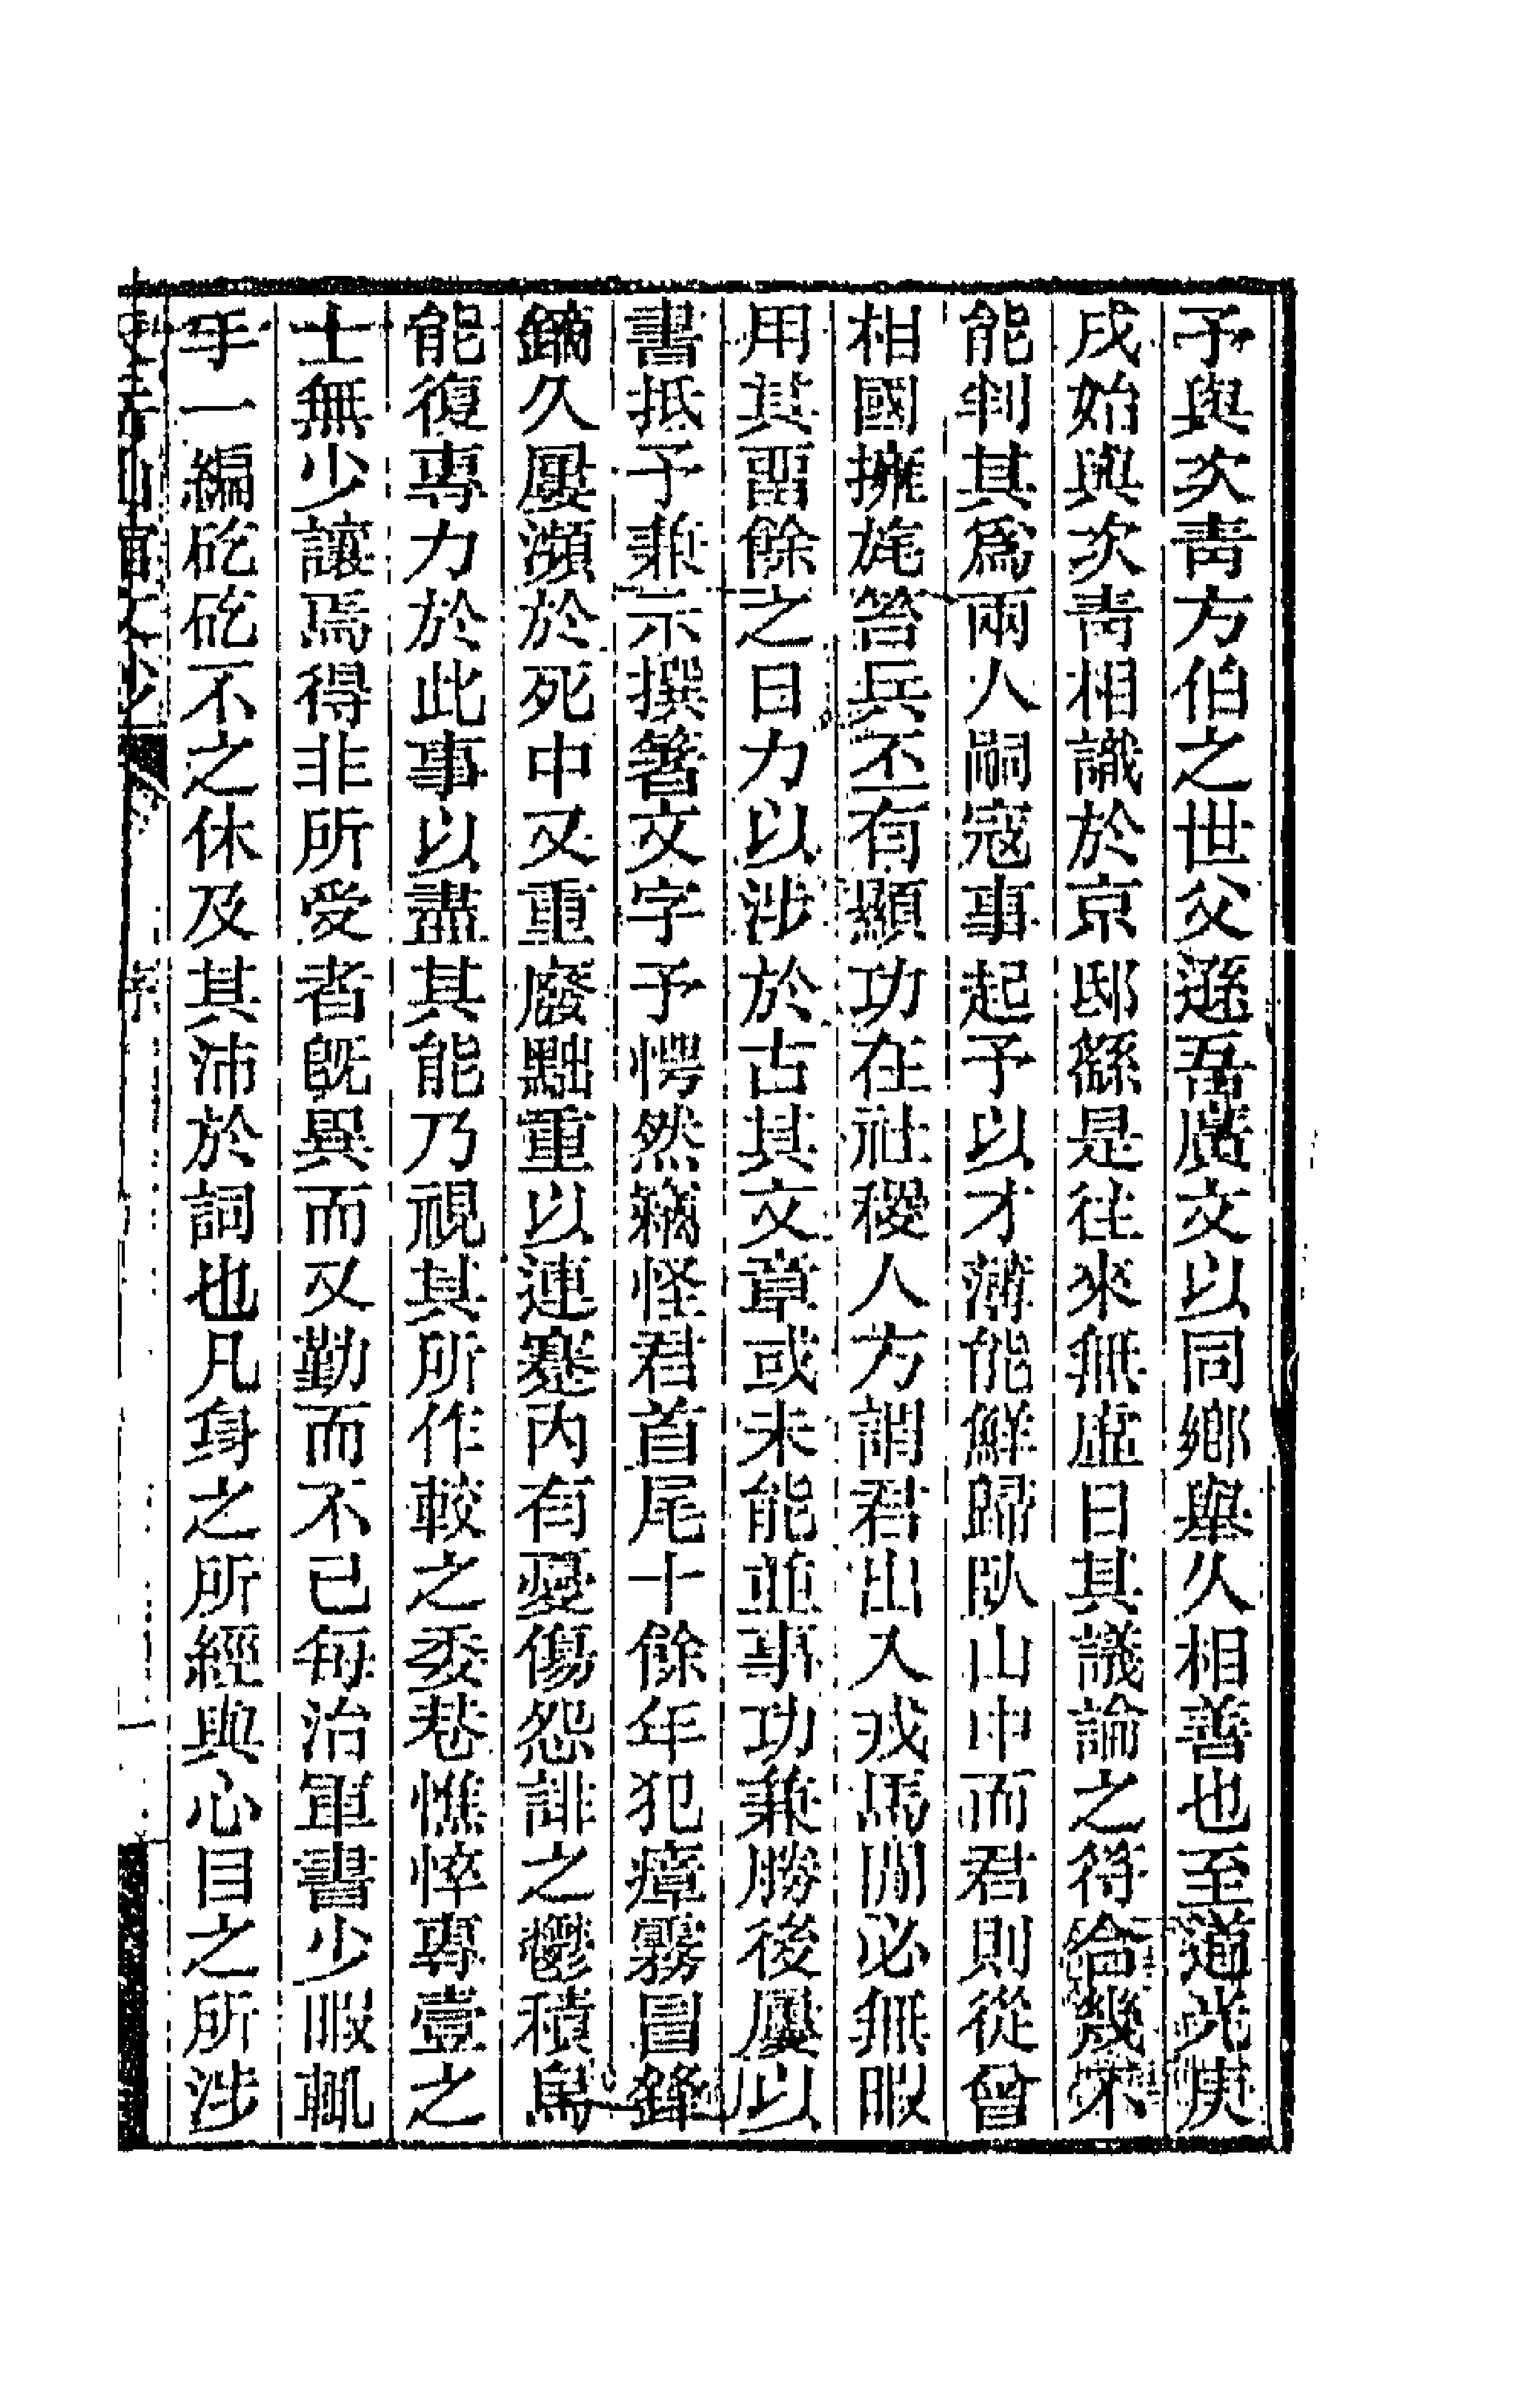 予與次青方伯之世父遜吾廣文以同鄉舉久相善也至道光庚
戌始與次青相識於京邸繇是往來無虛日其議論之符合幾不
能判其爲兩人嗣寇事起予以才薄能鮮歸臥山中而君則從曾
相國擁旄箸兵丕有顯功在社稷人方謂君出入戎馬閒必無暇
用其畱餘之日力以涉於古其文章或未能並事功兼勝後屢以
書抵予兼示撰箸文字予愕然竊怪君首尾十餘年犯瘴霧冒鋒
鏑久屢瀕於死中又重廢黜重以連蹇內有憂傷怨誹之鬱積烏
能復專力於此事以盡其能乃視其所作較之委巷憔悴專壹之
士無少讓焉得非所受者旣異而又勤而不已每治軍書少暇輒
手一編矻矻不之休及其沛於詞也凡身之所經與心目之所涉